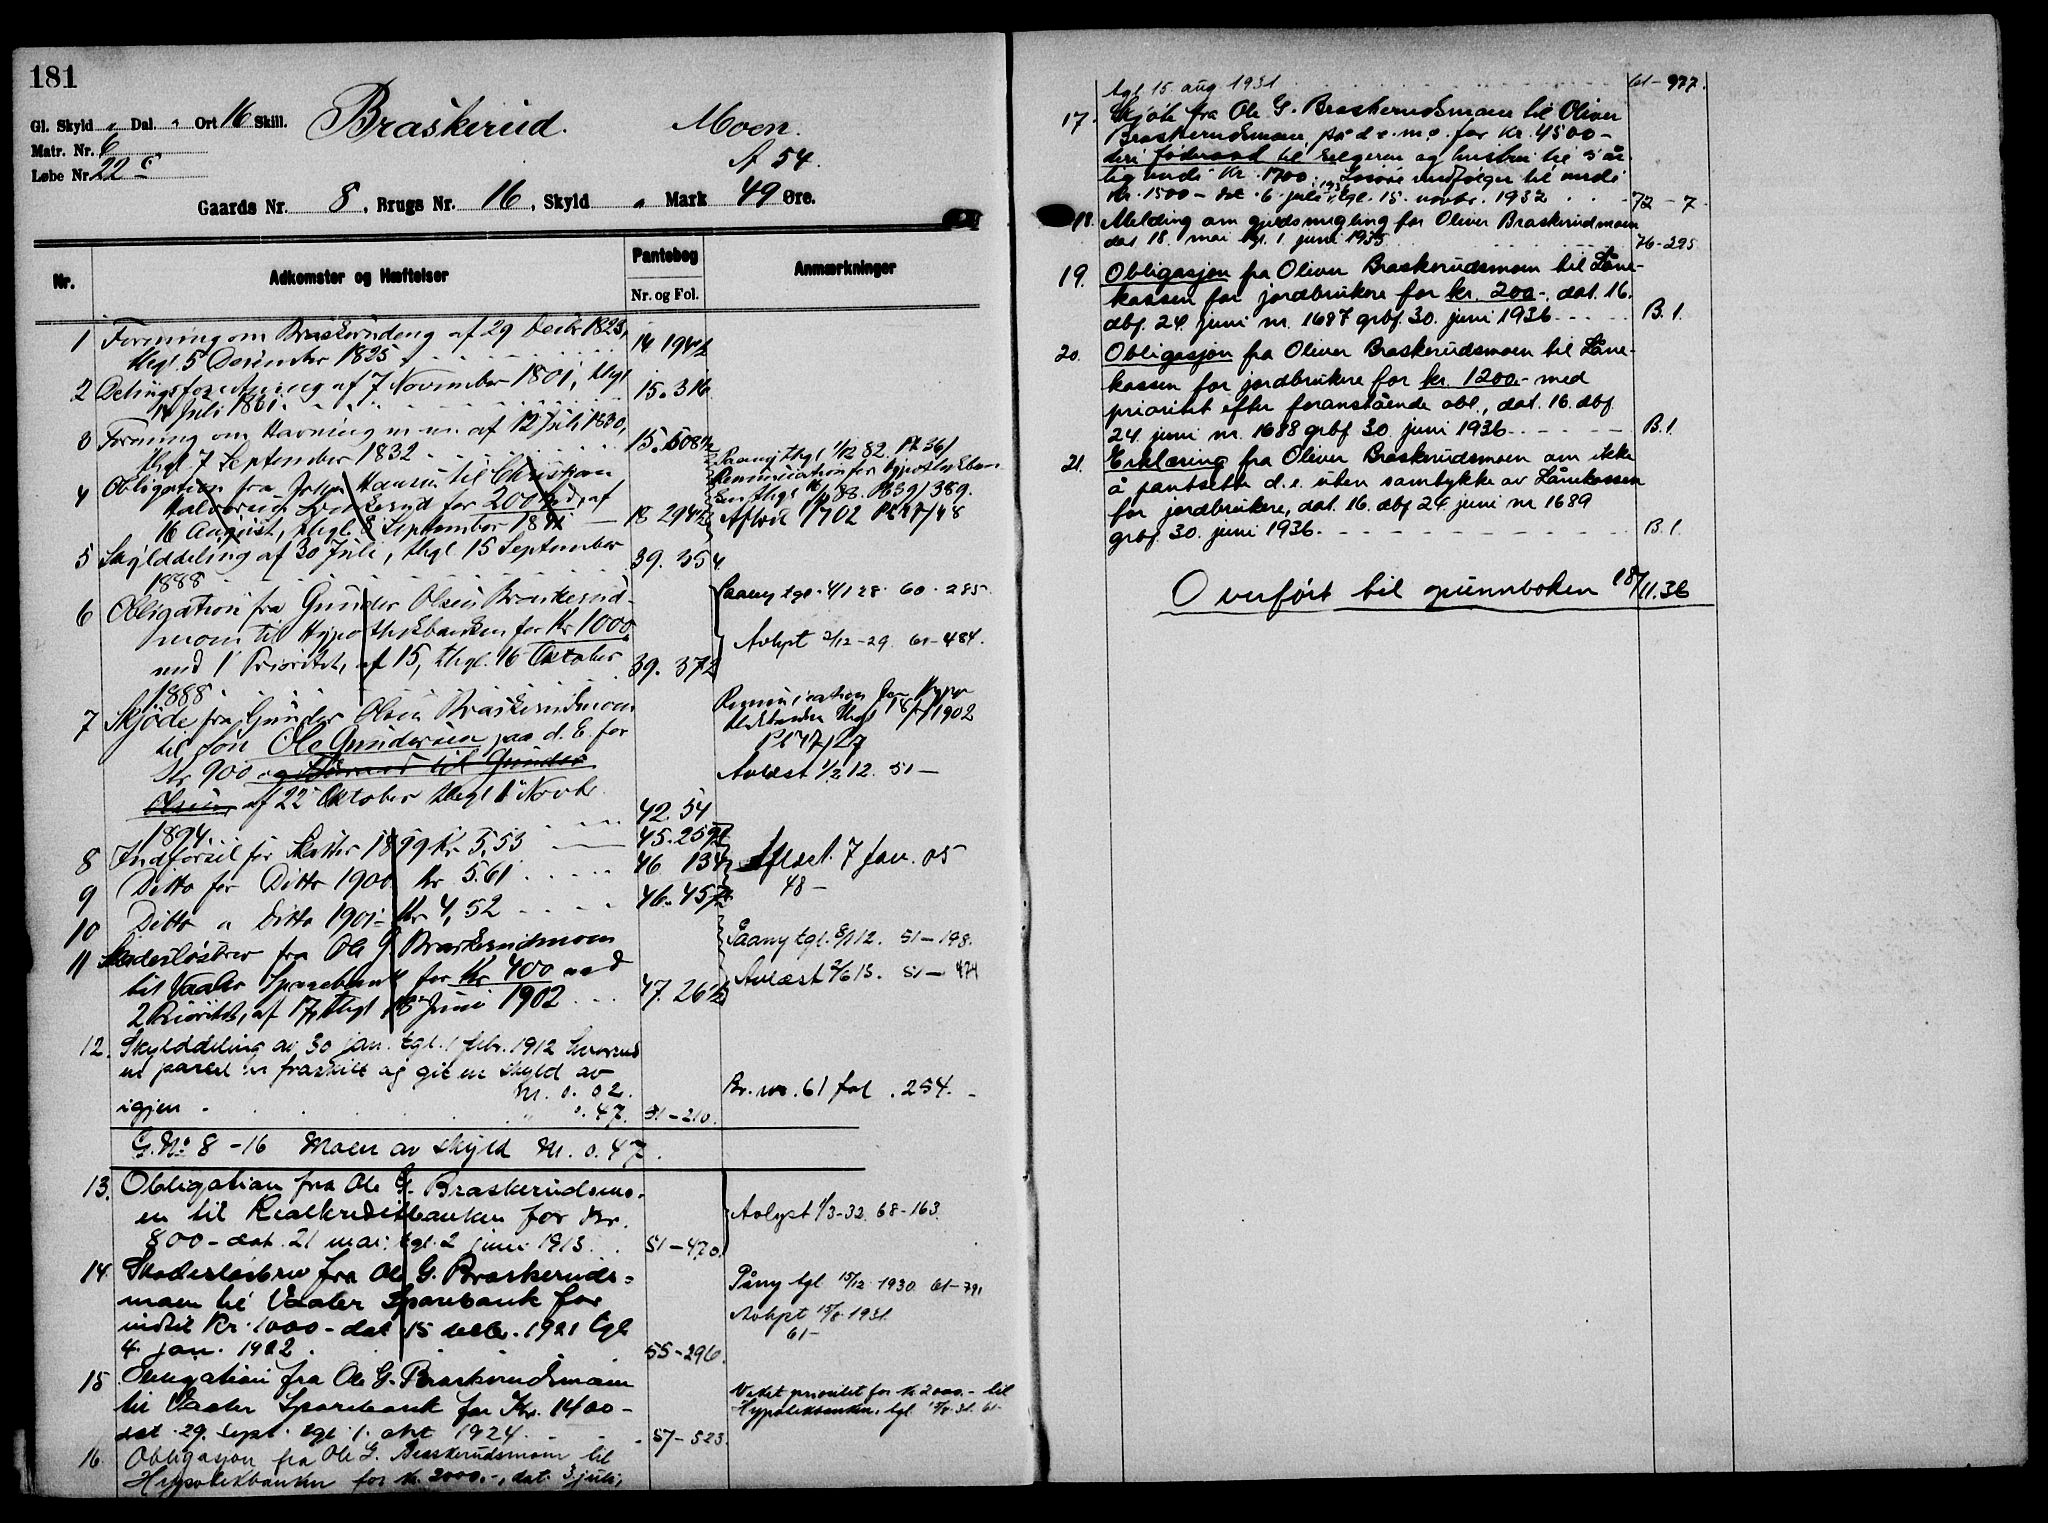 181
Gl. Skyld " Dal. " Ort 16 Skill.
Braskerud. Moen.
Matr. Nr. 6
A 54.
Løbe Nr. 22 c
Gaards Nr. 8, Brugs Nr. 16, Skyld " Mark 49 Øre.
Nr.
Adkomster og Hæftelser
Pantebog
Nr. og Fol.
Anmærkninger
1 Forening om Braskerudeng af 29 Decbr 1823,
thgl 5 December 1825 14 194
2 Delingsforretning af 7 November 1801, thgl
14 Juli 1831. 15. 316
3 Forening om Havning m. m. af 12 Juli 1830,
thgl 7 September 1832 15. 508
4 Obligation fra John Hansen til Christian
Halvorsen Braskerud for 200 af
16 August, thgl 8 September 18 18 294
Paany thgl 1/12 82. Pb 36/
Renunciation for Hypothekban-
ken thgl 88. Pb 39/389.
Aflæst 1/7 02 Pb 47/48
5 Skylddeling af 30 Juli, thgl 15 September
1888 39. 354
6 Obligation fra Gunder Olsen Braskerud-
moen til Hypothekbanken for Kr 1000
med 1 Prioritet, af 15, thgl. 16 Oktober
1888. 39. 372
Paany tgl. 4/1 28. 60 - 285.
Avlyst 2/12 - 29. 61 - 484.
7 Skjøde fra Gunder Olsen Braskerudmoen
til Søn Ole Gundersen paa d. E. for
Kr 900 og til Gunder
Olsen, af 22 Oktober thgl 1 Novbr.
1894. 42. 54
Renunciation for Hypo-
thekbanken thgl 18/6 1902
Pb 47/27
Avlæst 1/2 12. 51 -
8 Indførsel for Skatter 1899 Kr. 5,53 45. 259
9 Ditto for Ditto 1900 Kr 5.61 46 134
10 Ditto " Ditto 1901 Kr 4,52 46. 457
Aflæst. 7 Jan. 05
48 -
11 Skadesløsbrev fra Ole G Braskerudmoen
til Vaaler Sparebank for Kr 400 med
2 Prioritet, af 17, thgl 18 Juni 1902 47. 26
Paany tgl. 8/1 12. 51 - 198.
Avlæst 2/6 13. 51 - 474
12. Skylddeling av 30 jan. tgl. 1 febr. 1912 hvorved
en parcel er fraskilt og git en skyld av
M. 0. 02.
igjen " 0. 47. 51 - 210.
Br. no. 61 fol. 254. -
G. No 8 - 16 Moen av skyld M. 0. 47.
13. Obligation fra Ole G. Braskerudsmo-
en til Realkreditbanken for Kr.
800 - dat. 21 mai, tgl. 2 juni 1913. 51 - 470.
Avlyst 1/3 - 32. 68 - 163.
14. Skadesløsbrev fra Ole G. Braskeruds-
moen til Vaaler Sparebank for
indtil Kr. 1000 - dat 15 decbr. 1921 tgl
4. jan. 1922. 55 - 296.
Påny tgl 15/12 1930. 61 - 791
Avlyst 15/8 1931.
61 -
15 Obligation fra Ole G. Braskerudsmoen
til Vaaler Sparebank for Kr. 1400 -
dat. 29. sept. tgl. 1. okt 1924 57 - 523.
Veket prioritet for kr 2000.- til
Hypotekbanken, tgl. 15/8 31. 61 -
16 Obligasjon fra Ole G. Braskerudsmoen til
Hypotekbanken for kr. 2000.-, dat. 3 juli,
tgl. 15. aug 1931 61 - 977.
17. Skjøte fra Ole G. Braskerudsmoen til Oliver
Braskerudsmoen på d. e. m. a. for kr. 4500 -
deri føderaad til selgeren og hustru til 5 år-
lig verdi kr. 1700. Løsøre medfølger til verdi
kr. 1500 - dat. 6. juli 1932, tgl. 15. novbr. 1932 72 - 7.
18. Melding om gjeldsmegling for Oliver Braskerudmoen
dat 18. mai tgl. 1. juni 1935 76 - 295
19. Obligasjon fra Oliver Braskerudsmoen til Låne-
kassen for jordbrukere for kr. 200.-, dat. 16.
dbf. 24. juni nr. 1687 grbf. 30. juni 1936 B. 1.
20. Obligasjon fra Oliver Braskerudsmoen til Låne-
kassen for jordbrukere for kr. 1200.- med
prioritet efter foranstående obl., dat. 16. dbf.
24. juni nr. 1688 grbf 30. juni 1936 B. 1.
21. Erklæring fra Oliver Braskerudsmoen om ikke
å pantsette d. e. uten samtykke av Lånekassen
for jordbrukere, dat. 16. dbf 24. juni nr 1689
grbf. 30. juni 1936 B. 1.
Overført til grunnboken 18/11.36